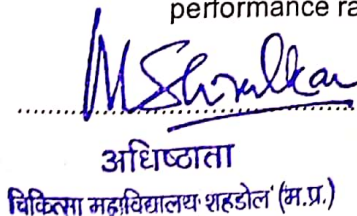 performance ra
अधिष्ठाता
चिकित्सा महाविद्यालय शहडोल (म.प्र.)